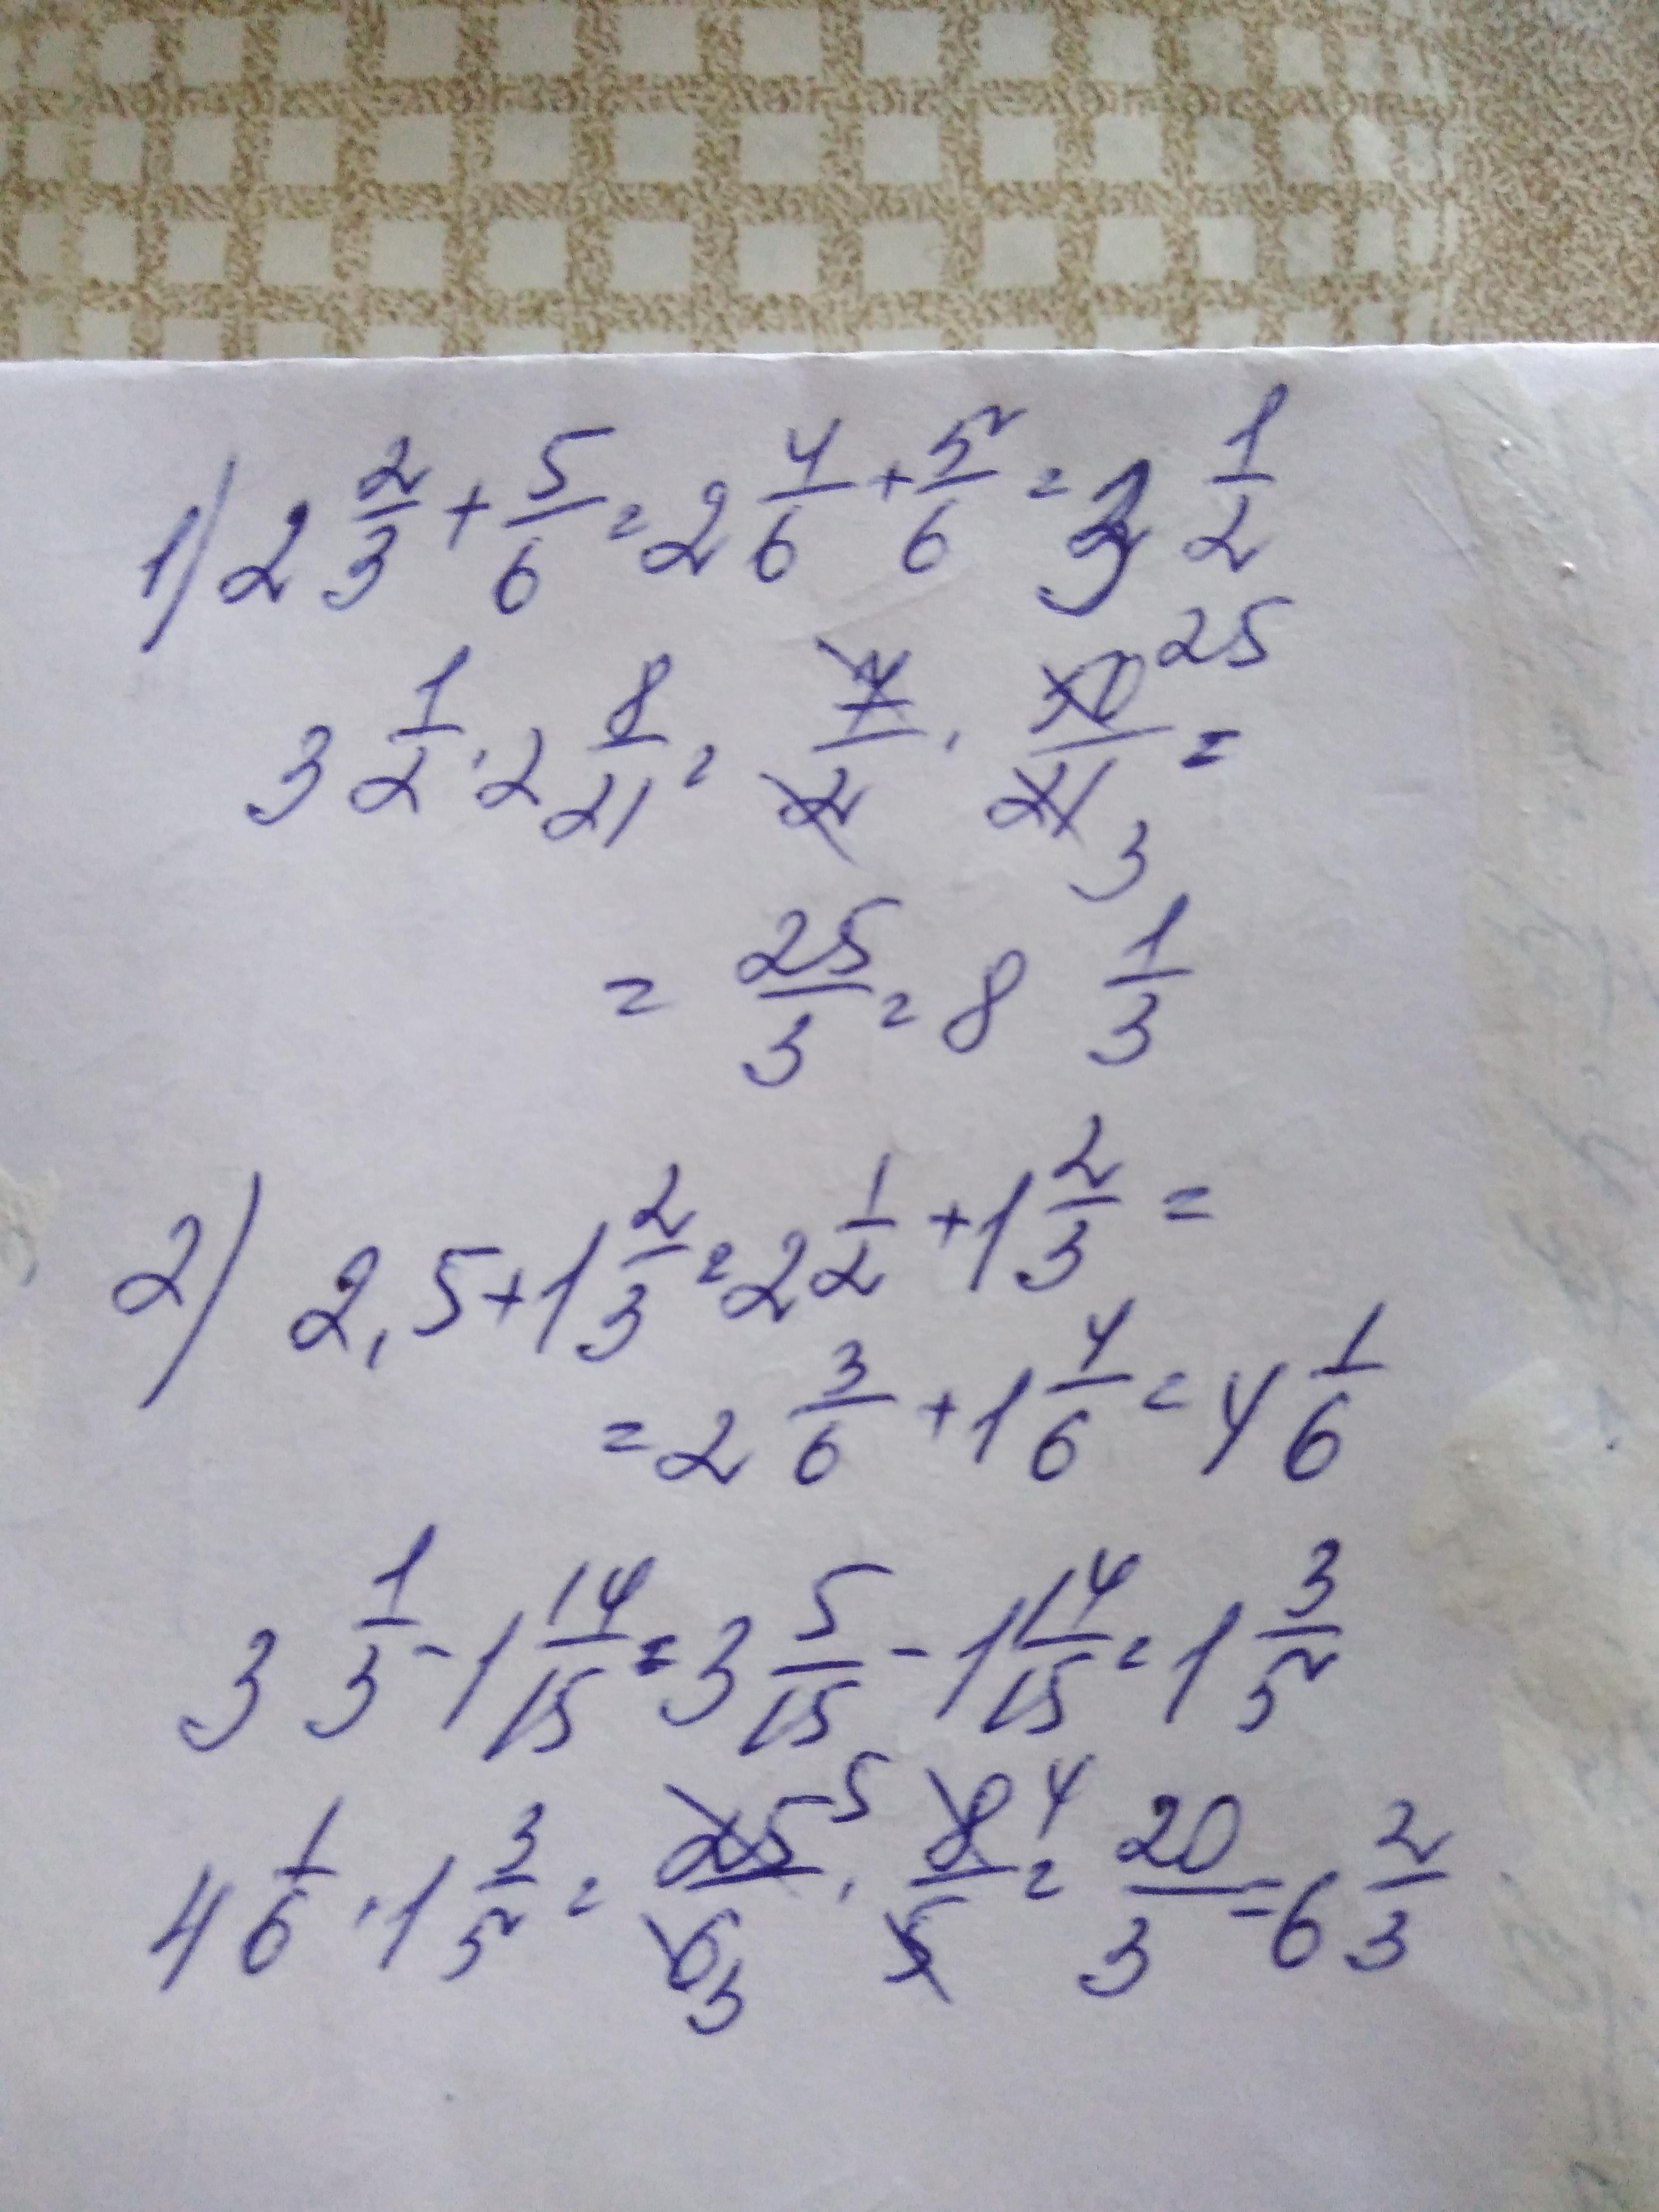 1) 2 2/3 + 5/6 = 2 4/6 + 5/6 = 3 1/2
3 1/2 · 2 8/21 = 7/2 · 50/21 25 3 =
= 25/3 = 8 1/3
2) 2,5 + 1 2/3 = 2 1/2 + 1 2/3 =
= 2 3/6 + 1 4/6 = 4 1/6
3 1/3 - 1 14/15 = 3 5/15 - 1 14/15 = 1 3/5
4 1/6 · 1 3/5 = 25/6 5 3 · 8/5 4 = 20/3 = 6 2/3